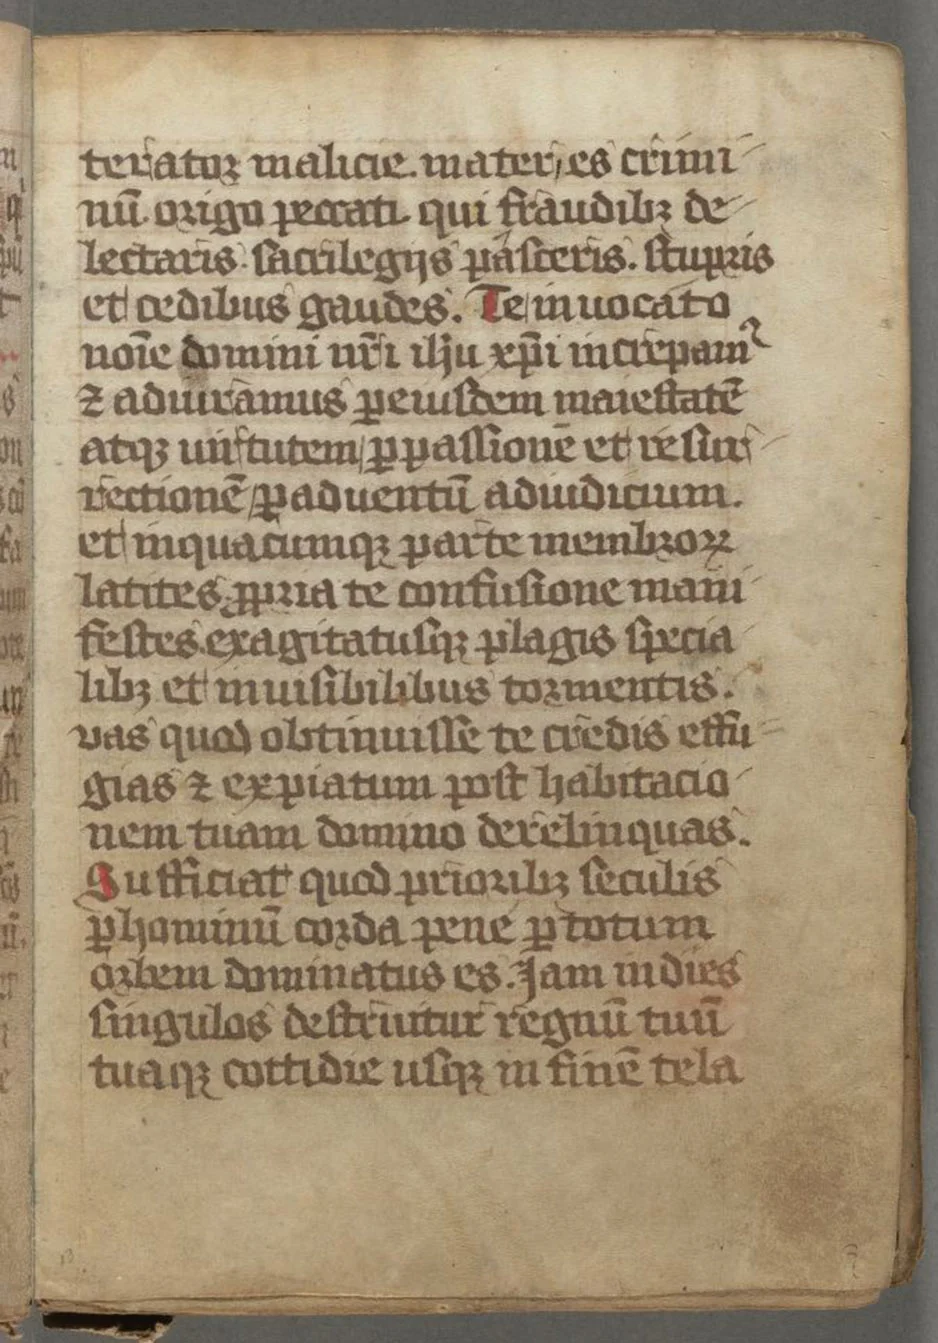 terator malicie. mater es crimi
nū. origo peccati. qui fraudibꝫ de
lectaris. sacrilegijs pasceris. stupris
et cedibus gaudes. Te inuocato
noīe domini nr̄i ihū xp̄i increpam᷑
⁊ adiuramus ꝑ eiusdem maiestatē
atqꝫ uirtutem, ꝑ passionē et resur
rectionē, ꝑ aduentū ad iudicium.
et in quacumqꝫ parte membroꝝ
latites, ꝓpria te confusione mani
festes. exagitatusqꝫ plagis specia
libꝫ et inuisibilibus tormentis.
vas quod obtinuisse te credis effu
gias ⁊ expiatum post habitacio
nem tuam domino derelinquas.
Sufficiat quod prioribꝫ seculis
ꝑ hominū corda pene ꝑ totum
orbem dominatus es. Jam in dies
singulos destruitur regnū tuū
tuaqꝫ cottidie usqꝫ in finē tela